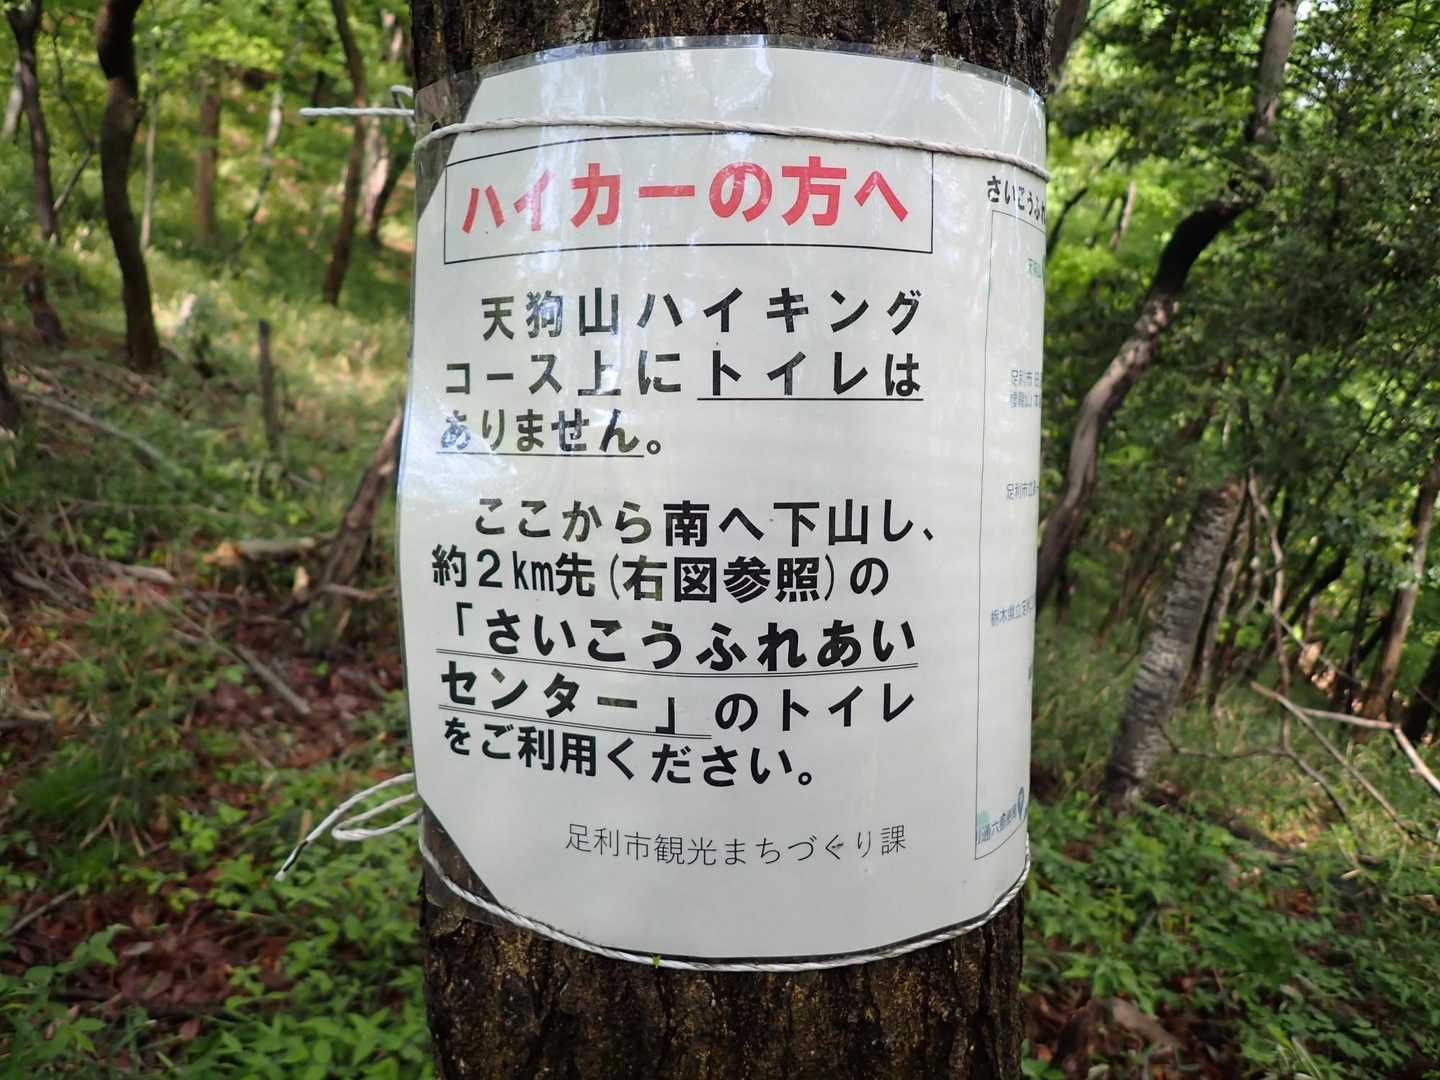 ハイカーの方へ
天狗山ハイキング
コース上にトイレは
ありません。
ここから南へ下山し、
約2km先(右図参照)の
「さいこうふれあい
センター」のトイレ
をご利用ください。
足利市観光まちづくり課
さいこうふれ
足利市
栃木県立足